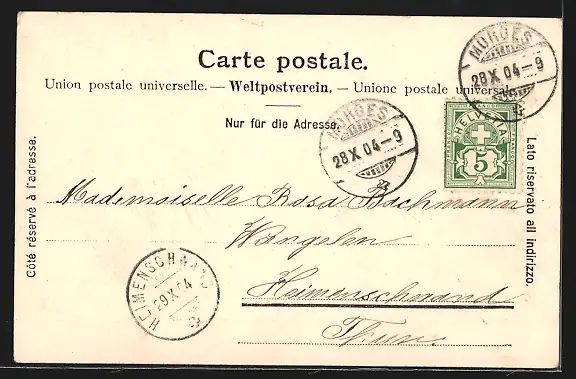 Carte postale.
Union postale universelle. — Weltpostverein. — Unione postale universale.
Nur für die Adresse.
MORGES
28 X 04-9
MORGES
28 X 04-9
HELVETIA
FRANCO
5
Côté réservé à l'adresse.
Lato riservato all indirizzo.
Mademoiselle Rosa Bachmann
Wangelen
Heimenschwand
Thun
HEIMENSCHWAND
29 X 04